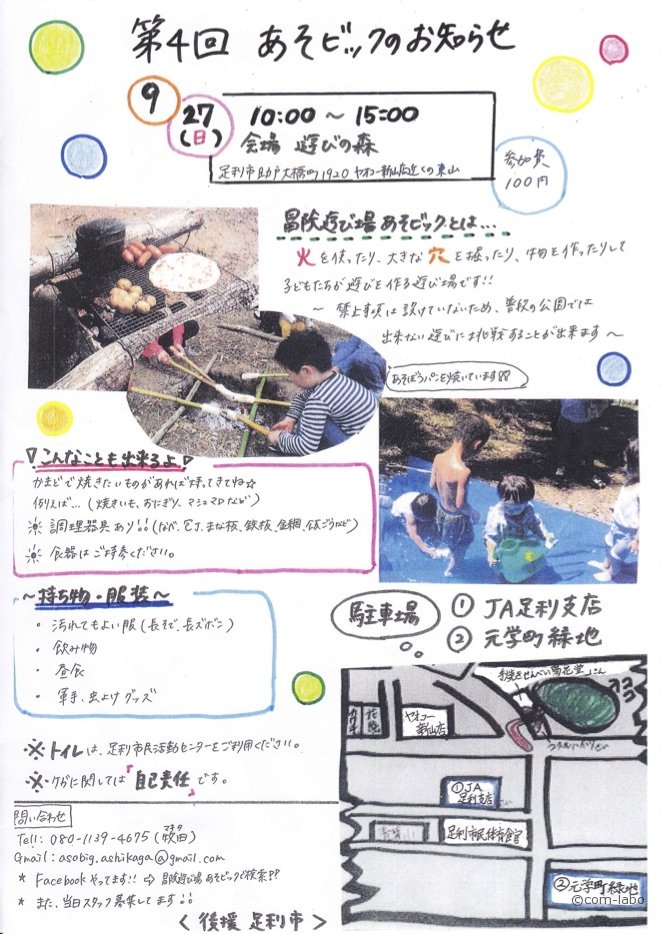 第4回 あそビックのお知らせ
9
27
(日)
10:00 〜 15:00
会場 遊びの森
足利市助戸大橋町1920 ヤオコー新山店近くの東山
参加費
100円
冒険遊び場 あそビックとは…
火を使ったり、大きな穴を掘ったり、物を作ったりして
子どもたちが遊びを作る遊び場です!!
〜 禁止事項は設けていないため、普段の公園では
出来ない遊びに挑戦することが出来ます 〜
あそぼうパンを焼いています!!
こんなことも出来るよ
かまどで焼きたいものがあれば持ってきてね☆
例えば…(焼きいも、おにぎり、マシュマロなど)
※ 調理器具あり!!(なべ、包丁、まな板、鉄板、金網、など)
※ 食器はご持参ください。
〜持ち物・服装〜
・ 汚れてもよい服(長そで、長ズボン)
・ 飲み物
・ 昼食
・ 軍手、虫よけグッズ
駐車場
① JA足利支店
② 元学町緑地
手焼きせんべい 菊花堂さん
ヤオコー
新山店
①JA
足利支店
足利市民体育館
②元学町緑地
※トイレは、足利市民活動センターをご利用ください。
※ケガに関しては「自己責任」です。
問い合わせ
Tell: 080-1139-4675 (牧田)
Gmail: asobig.ashikaga@gmail.com
* Facebookやってます!! ⇨ 冒険遊び場 あそビックで検索!!
* また、当日スタッフ募集してます!!
< 後援 足利市 >
©com-labo